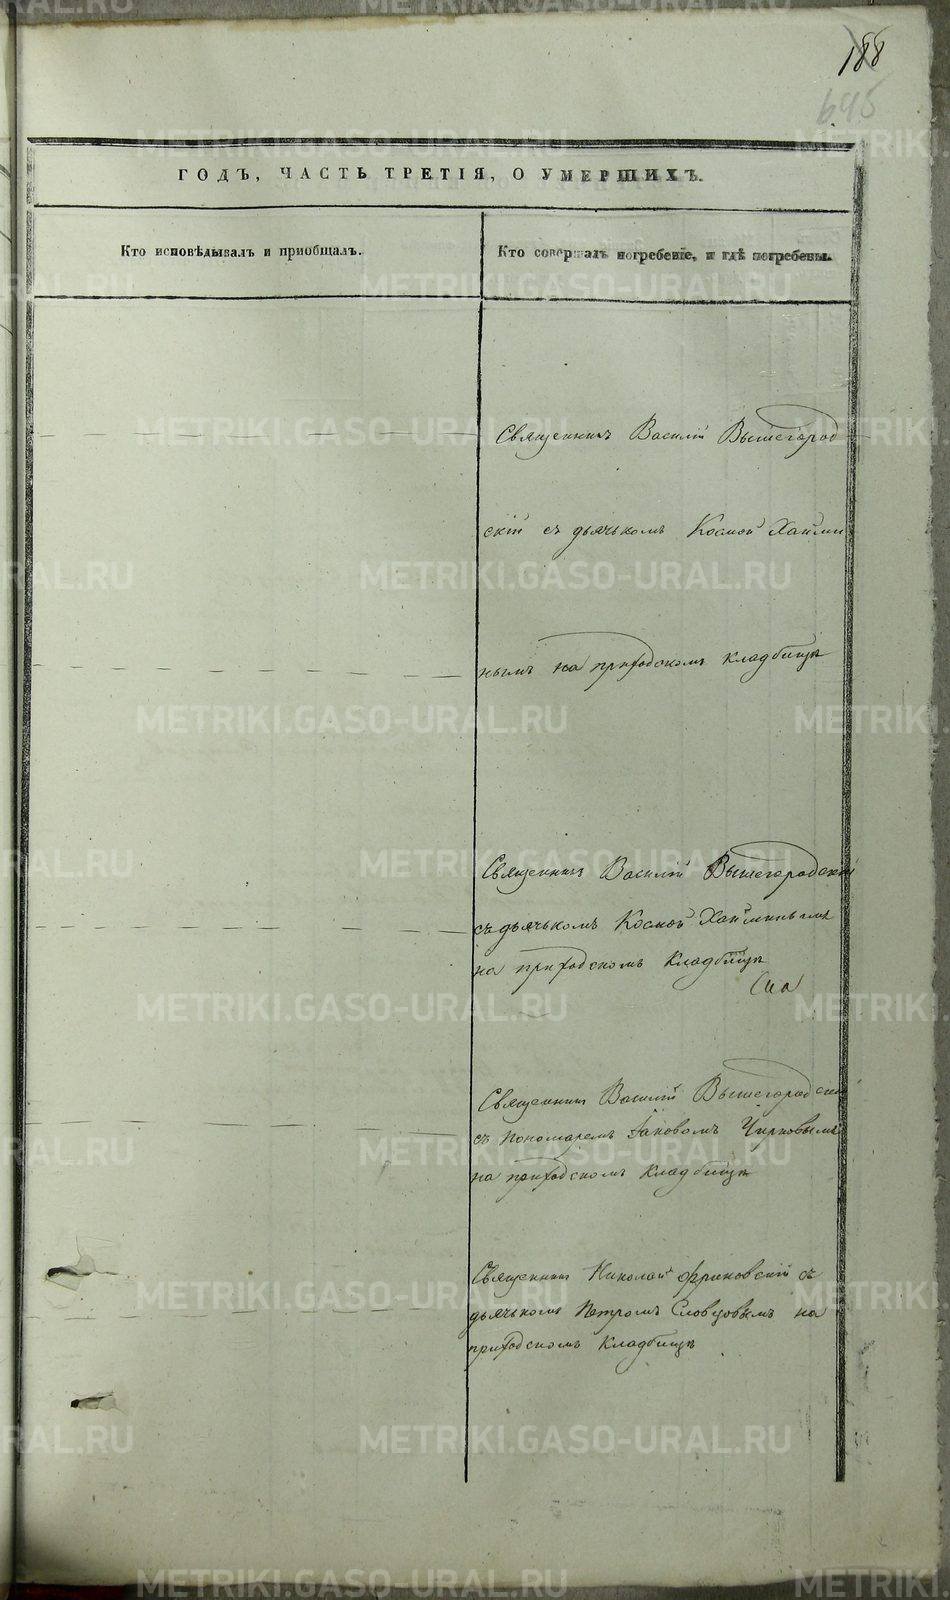 188
645
ГОДЪ, ЧАСТЬ ТРЕТІЯ, О УМЕРШИХЪ.
Кто исповѣдывалъ и пріобщалъ.
Кто совершалъ погребеніе, и гдѣ погребены.
Священникъ Василій Вышегород
скій съ дьячькомъ Космой Хайми
нымъ на приходскомъ кладбищѣ
Священникъ Василій Вышегородскій
съ дьячькомъ Космой Хайминымъ
на приходскомъ кладбищѣ
Священникъ Василій Вышегородскій
съ пономаремъ Іаковомъ Чирковымъ
на приходскомъ кладбищѣ
Священникъ Николай съ
дьячькомъ Петромъ Словцовымъ на
приходскомъ кладбищѣ
METRIKI.GASO-URAL.RU